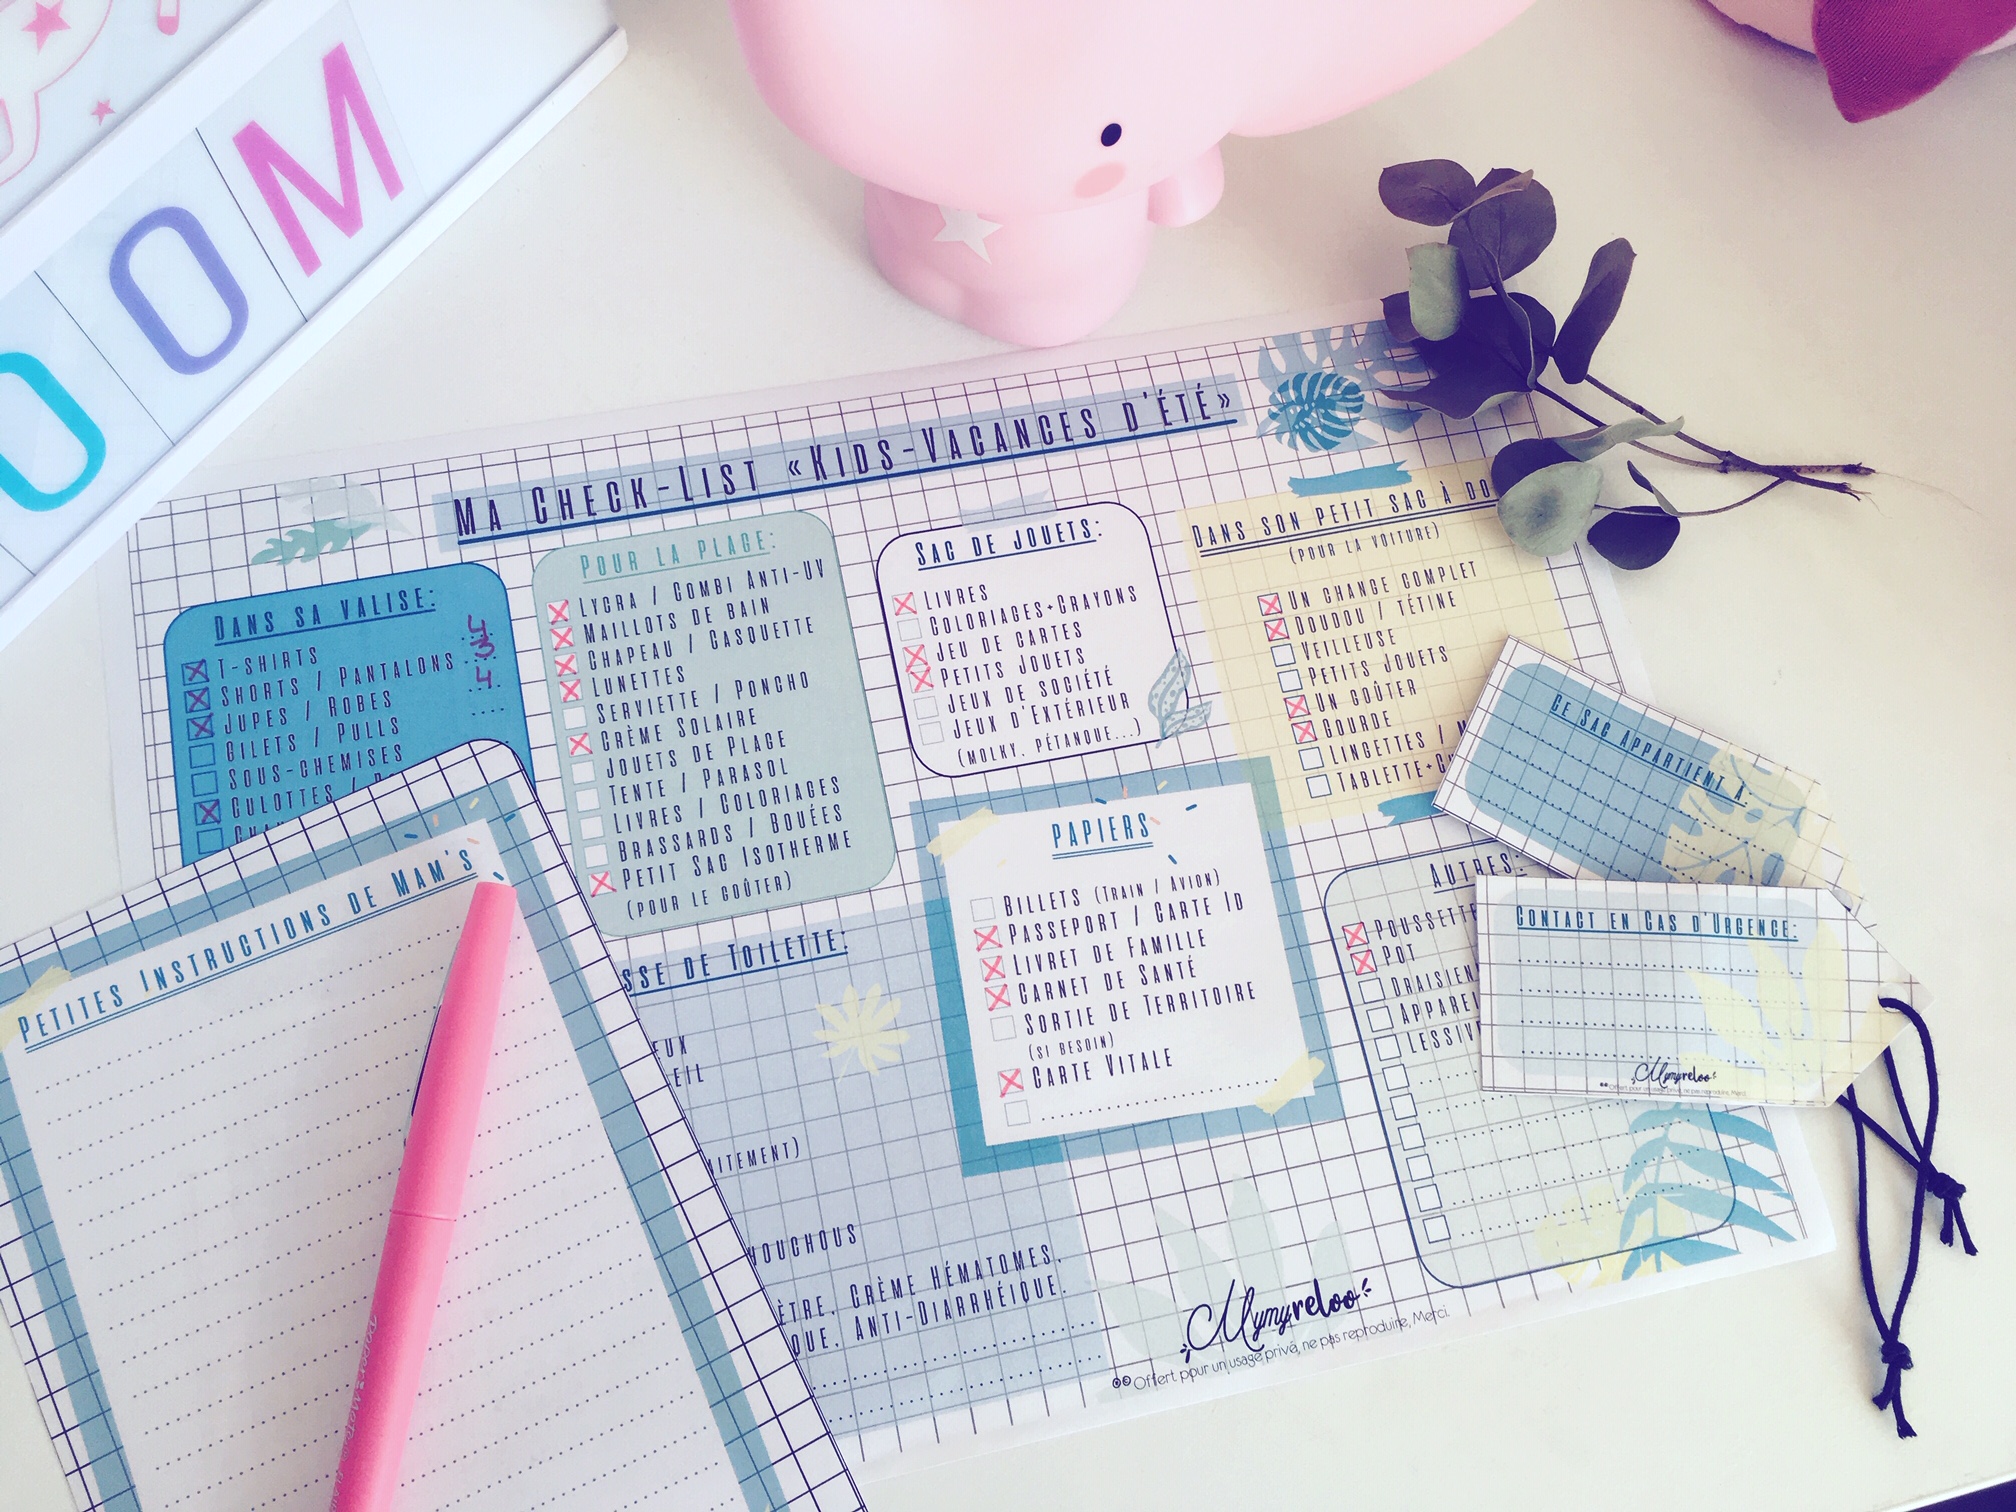 OOM
MA CHECK-LIST «KIDS-VACANCES D'ÉTÉ»
DANS SA VALISE:
T-SHIRTS 4
SHORTS / PANTALONS 3
JUPES / ROBES 4
GILETS / PULLS
SOUS-CHEMISES
CULOTTES /
POUR LA PLAGE:
LYCRA / COMBI ANTI-UV
MAILLOTS DE BAIN
CHAPEAU / CASQUETTE
LUNETTES
SERVIETTE / PONCHO
CRÈME SOLAIRE
JOUETS DE PLAGE
TENTE / PARASOL
LIVRES / COLORIAGES
BRASSARDS / BOUÉES
PETIT SAC ISOTHERME
(POUR LE GOÛTER)
SAC DE JOUETS:
LIVRES
COLORIAGES+CRAYONS
JEU DE CARTES
PETITS JOUETS
JEUX DE SOCIÉTÉ
JEUX D'EXTÉRIEUR
(MOLKY, PÉTANQUE...)
DANS SON PETIT SAC À DO
(POUR LA VOITURE)
UN CHANGE COMPLET
DOUDOU / TÉTINE
VEILLEUSE
PETITS JOUETS
UN GOÛTER
GOURDE
LINGETTES /
TABLETTE+C
CE SAC APPARTIENT À:
PETITES INSTRUCTIONS DE MAM'S
SSE DE TOILETTE:
EUX
EIL
AITEMENT)
HOUCHOUS
ÈTRE, CRÈME HÉMATOMES,
QUE, ANTI-DIARRHÉIQUE.
PAPIERS
BILLETS (TRAIN / AVION)
PASSEPORT / CARTE ID
LIVRET DE FAMILLE
CARNET DE SANTÉ
SORTIE DE TERRITOIRE
(SI BESOIN)
CARTE VITALE
AUTRES:
POUSSETTE
POT
DRAISIEN
APPAREI
LESSIV
CONTACT EN CAS D'URGENCE:
Mymyreloo
Offert pour un usage privé, ne pas reproduire, Merci.
Mymyreloo
Offert pour un usage privé, ne pas reproduire, Merci.